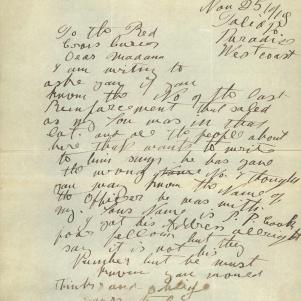 Nov 25 1918
Paradise
West coast
To the Red
Cross
Dear Madam
I am writing to
ask you if you
know the No of the last
Reinforcement that sailed
as my Son was in that
lot. and are the people about
here that wants to write
to him says he has gave
the wrong No. I thought
you may know the Name of
the Officer he was with.
My Sons Name is J. P. Cook
I got his address allright
poor fellow but they
say it is not his
Number but he must
know you would